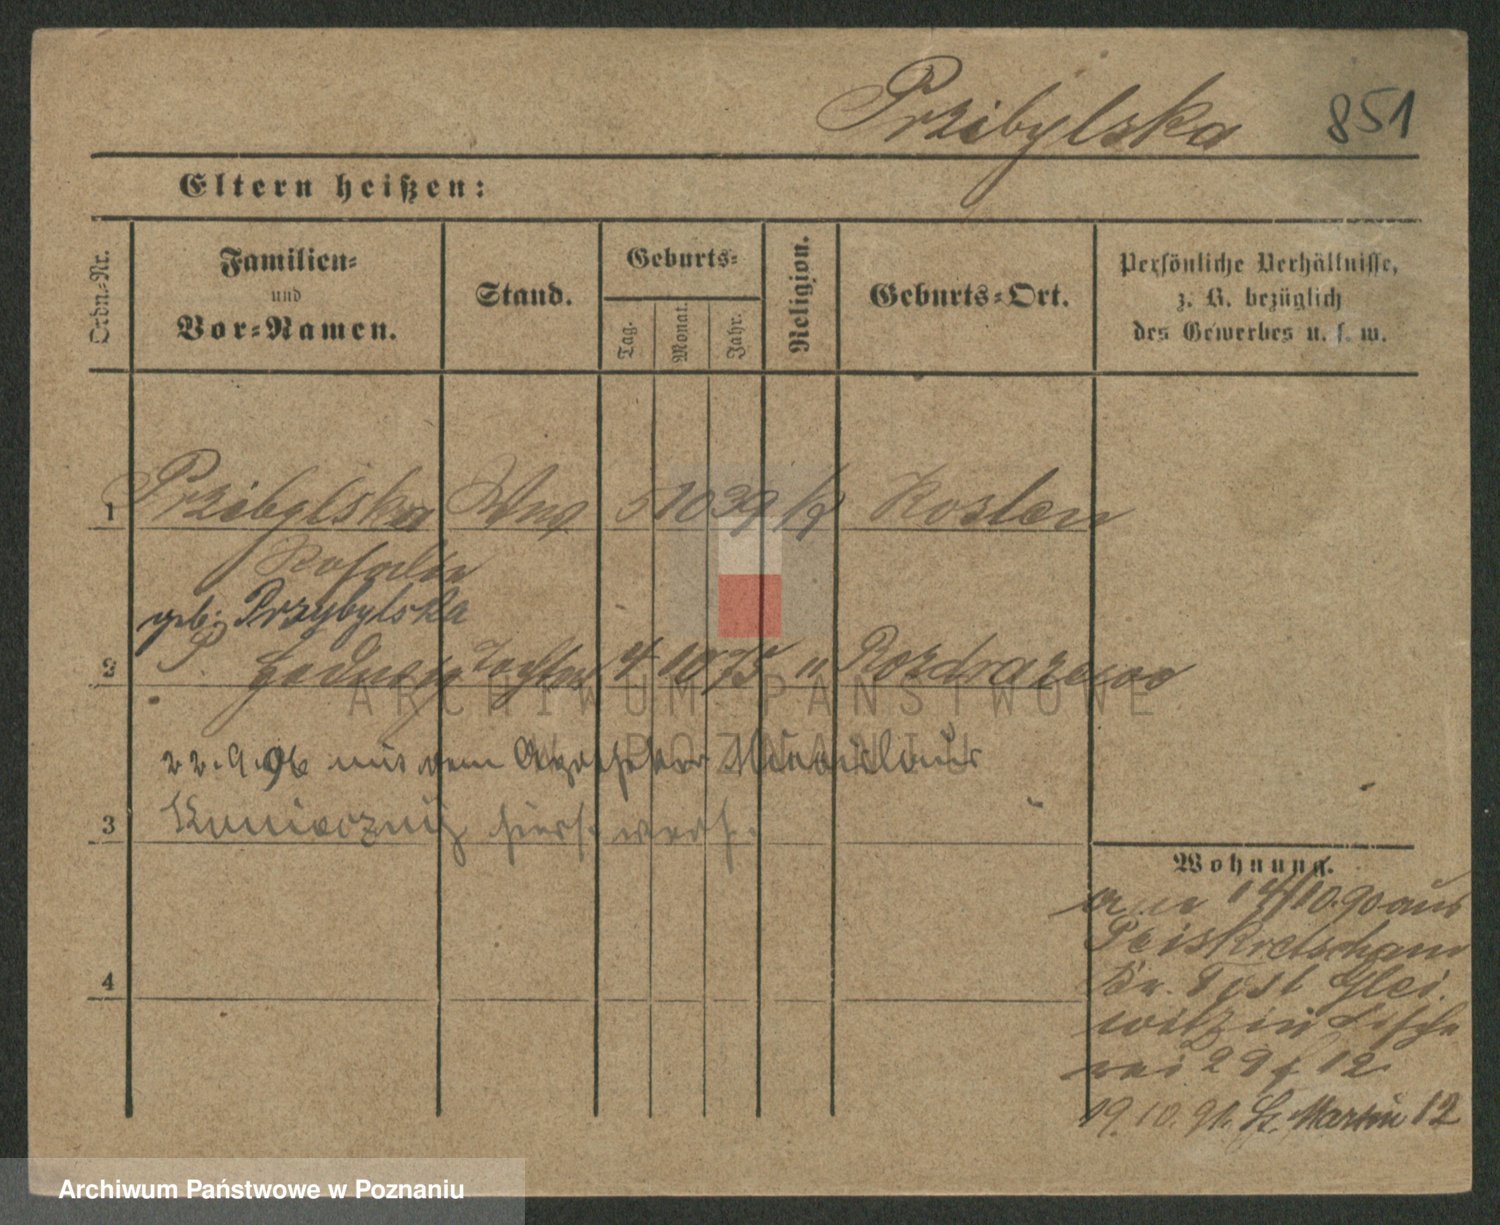 Przibylska 851
Eltern heißen:
Ordn.-Nr. Familien- und Vor-Namen. Stand. Geburts- Tag. Monat. Jahr. Religion. Geburts-Ort. Persönliche Verhältnisse, z. B. bezüglich des Gewerbes u. s. w.
1 Przibylska Wwe 5 10 39 k Kosten
Rosalie
geb. Przybylska
2 P. Hedwig Tochter 4 10 75 " Rozdrazewo
22.9.96 mit dem Apotheker
3 hies. verh.
4
Wohnung.
am 14/10.90 aus
Peiskretscham
Kr. Tost Glei-
witz in Fische
rei 29 12
19.10.91. St. Martin 12
ARCHIWUM PAŃSTWOWE
W POZNANIU
Archiwum Państwowe w Poznaniu